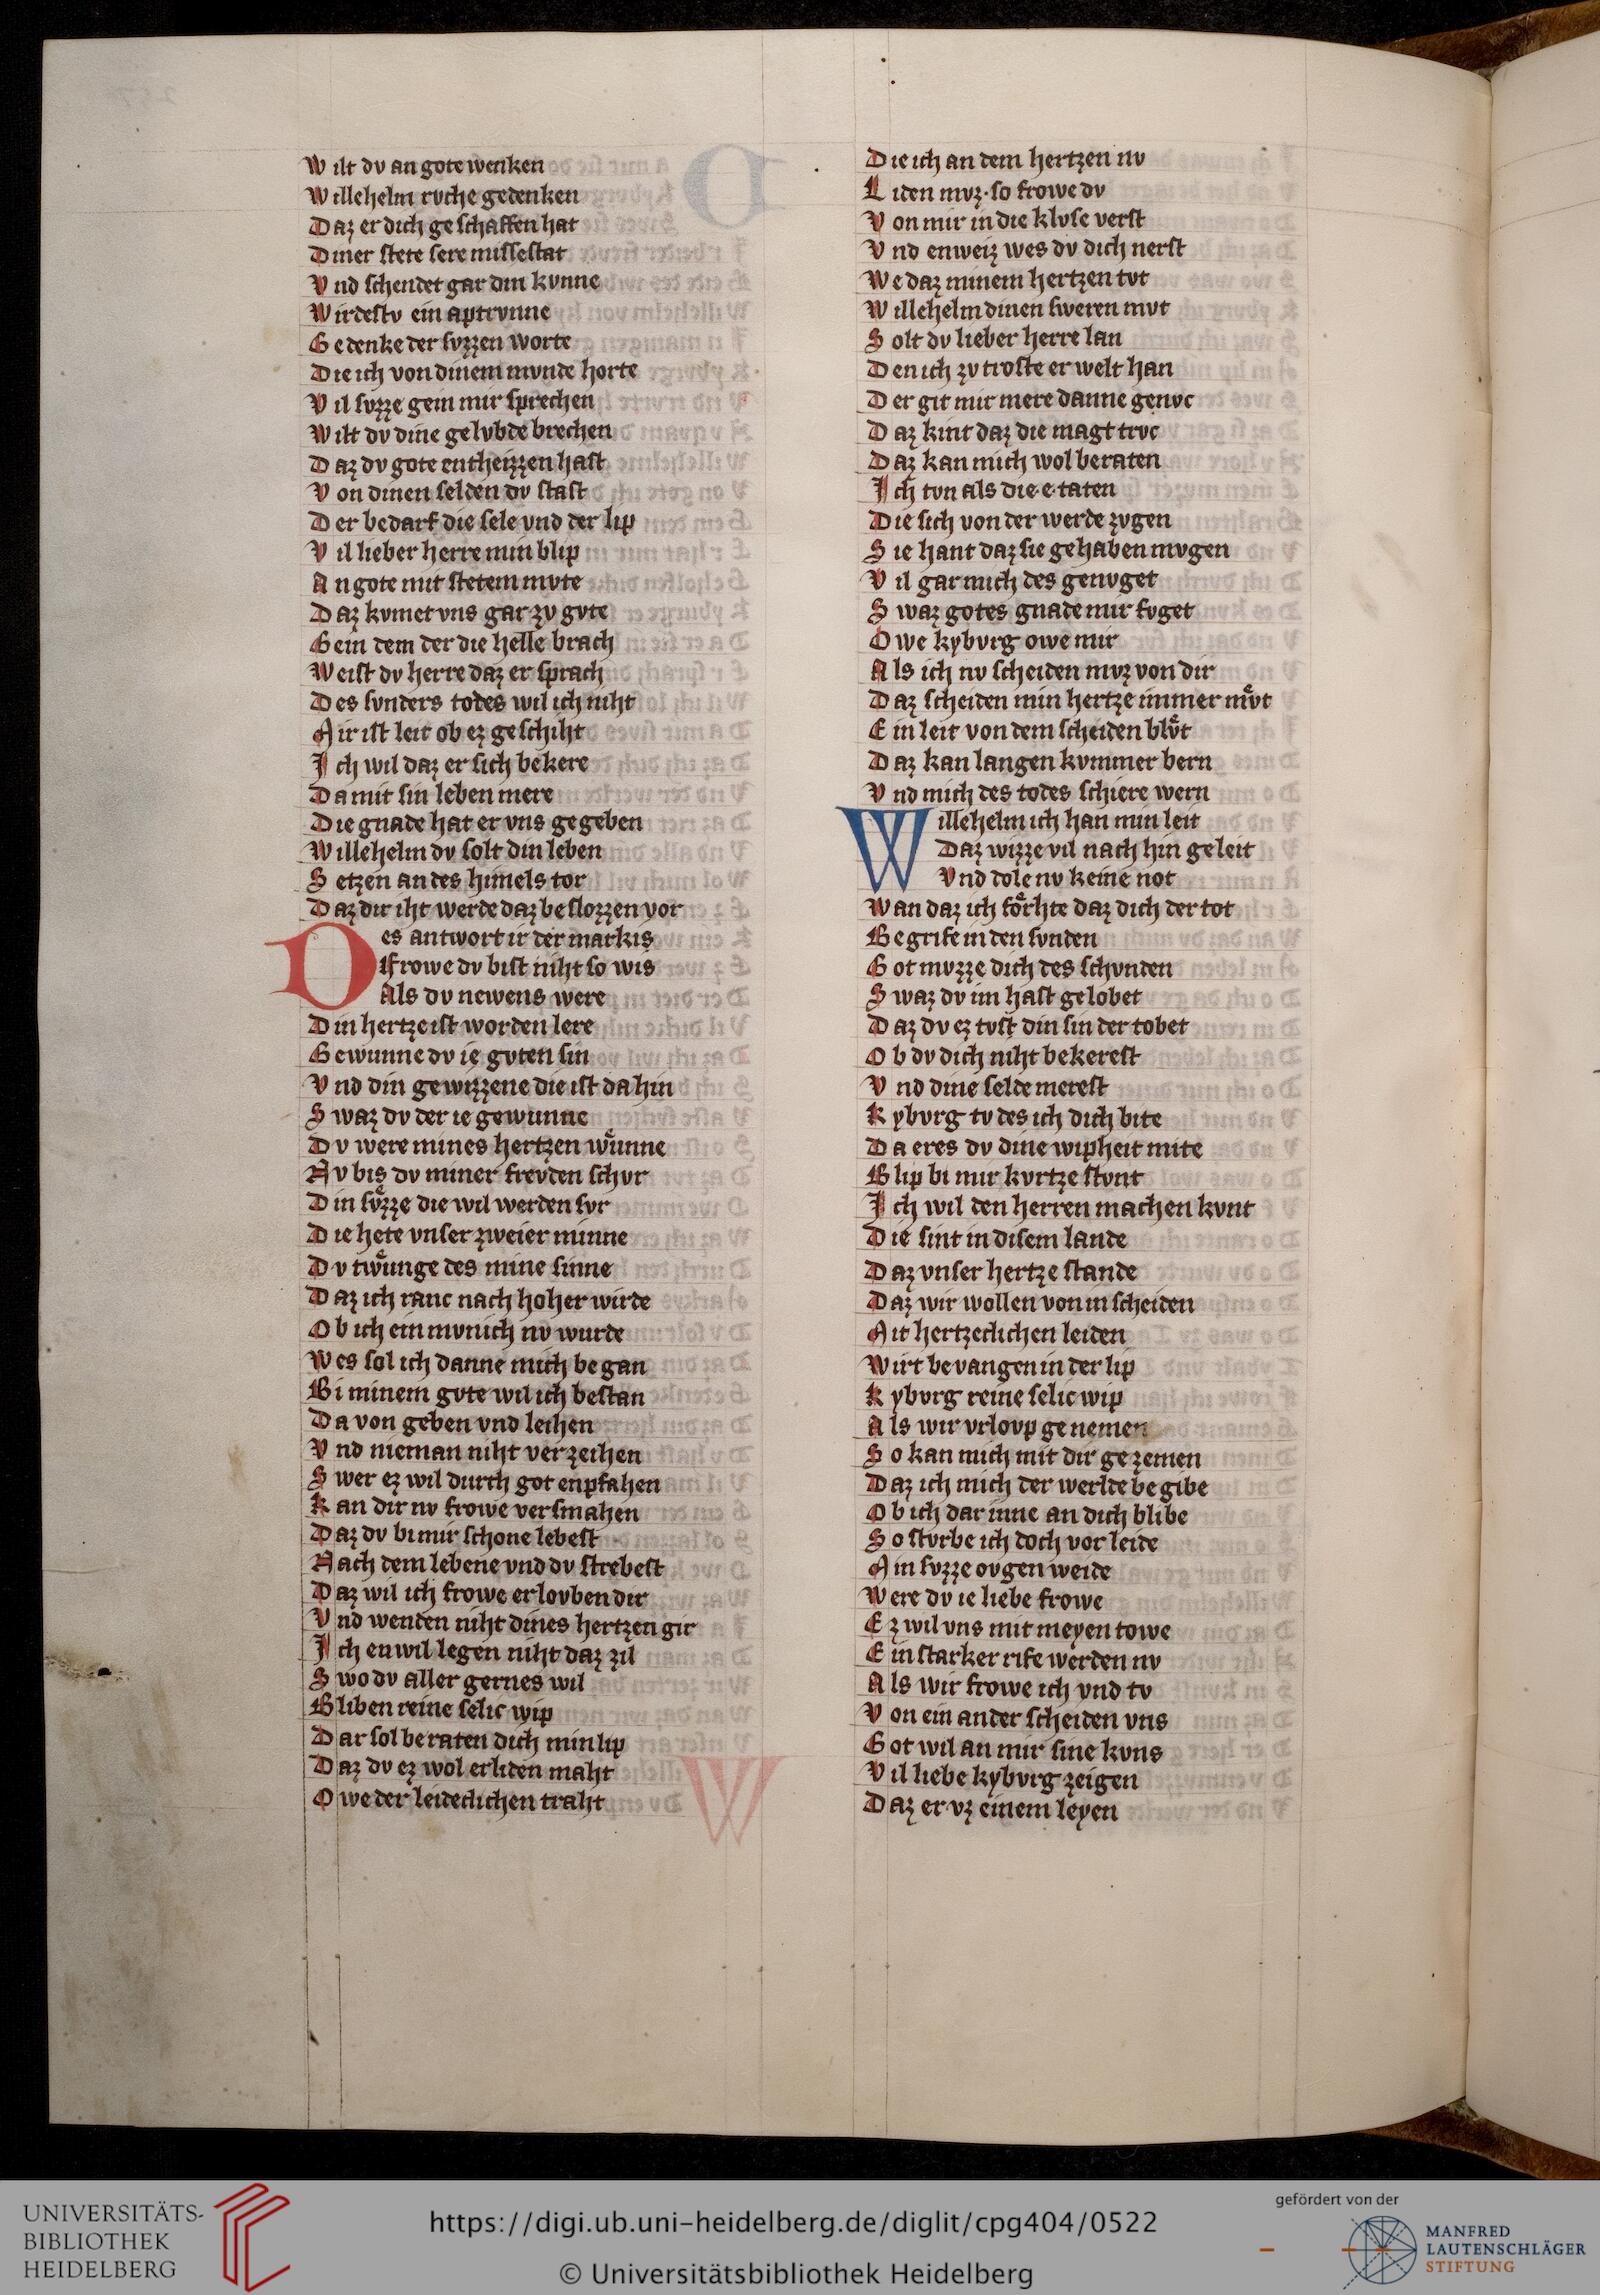 Wilt dv an gote wenken
Willehelm rvche gedenken
Daz er dich geschaffen hat
Diner stete sere missestat
Vnd schendet gar din kvnne
Wirdestv ein aptrvnne
Gedenke der svzzen worte
Die ich von dinem mvnde horte
Vil svzze gein mir sprechen
Wilt dv dine gelvbde brechen
Daz dv gote entheizzen hast
Von dinen selden dv stast
Der bedarf die sele vnd der lip
Vil lieber herre min blip
An gote mit stetem mvte
Daz kvmet vns gar zv gvte
Gein dem der die helle brach
Weist dv herre daz er sprach
Des svnders todes wil ich niht
Mir ist leit ob ez geschiht
Ich wil daz er sich bekere
Da mit sin leben mere
Die gnade hat er vns gegeben
Willehelm dv solt din leben
Setzen an des himels tor
Daz dir iht werde daz beslozzen vor
Des antwort ir der markis
frowe dv bist niht so wis
Als dv newens were
Din hertze ist worden lere
Gewunne dv ie gvten sin
Vnd din gewizzene die ist da hin
Swaz dv der ie gewunne
Dv were mines hertzen wͤunne
Nv bis dv miner frevden schvr
Din svͤzze die wil werden svr
Die hete vnser zweier minne
Dv twͤunge des mine sinne
Daz ich ranc nach hoher wirde
Ob ich ein mvnich nv wurde
Wes sol ich danne mich began
Bi minem gvte wil ich bestan
Da von geben vnd leihen
Vnd nieman niht verzeihen
Swer ez wil durch got enpfahen
Kan dir nv frowe versmahen
Daz dv bi mir schone lebest
Nach dem lebene vnd dv strebest
Daz wil ich frowe erlovben dir
Vnd wenden niht dines hertzen gir
Ich enwil legen niht daz zil
Swo dv aller gernes wil
Bliben reine selic wip
Dar sol beraten dich min lip
Daz dv ez wol erliden maht
Owe der leideclichen traht
Die ich an dem hertzen nv
Liden mvz·so frowe dv
Von mir in die klvse verst
Vnd enweiz wes dv dich nerst
We daz minem hertzen tvt
Willehelm dinen sweren mvt
Solt dv lieber herre lan
Den ich zv troste erwelt han
Der git mir mere danne genvc
Daz kint daz die magt trvc
Daz kan mich wol beraten
Ich tvn als die·e·taten
Die sich von der werde zvgen
Sie hant daz sie gehaben mvgen
Vil gar mich des genvget
Swaz gotes gnade mir fvget
Owe kybvrg owe mir
Als ich nv scheiden mvz von dir
Daz scheiden min hertze immer mvͤt
Ein leit von dem scheiden blvͤt
Daz kan langen kvmmer bern
Vnd mich des todes schiere wern
Willehelm ich han min leit
Daz wizze vil nach hin geleit
Vnd dole nv keine not
Wan daz ich foͤrhte daz dich der tot
Begrife in den svnden
Got mvzze dich des schvnden
Swaz dv im hast gelobet
Daz dv ez tvst din sin der tobet
Ob dv dich niht bekerest
Vnd dine selde merest
Kybvrg tv des ich dich bite
Da eres dv dine wipheit mite
Blip bi mir kvrtze stvnt
Ich wil den herren machen kvnt
Die sint in disem lande
Daz vnser hertze stande
Daz wir wollen von in scheiden
Mit hertzeclichen leiden
Wirt bevangen in der lip
Kybvrg reine selic wip
Als wir vrlovp genemen
So kan mich mit dir gezemen
Daz ich mich der werlde begibe
Ob ich dar inne an dich blibe
So stvrbe ich doch vor leide
Min svzze ovgen weide
Were dv ie liebe frowe
Ez wil vns mit meyen towe
Ein starker rife werden nv
Als wir frowe ich vnd tv
Von ein ander scheiden vns
Got wil an mir sine kvns
Vil liebe kybvrg zeigen
Daz er vz einem leyen
UNIVERSITÄTS-
BIBLIOTHEK
HEIDELBERG
https://digi.ub.uni-heidelberg.de/diglit/cpg404/0522
© Universitätsbibliothek Heidelberg
gefördert von der
MANFRED
LAUTENSCHLÄGER
STIFTUNG